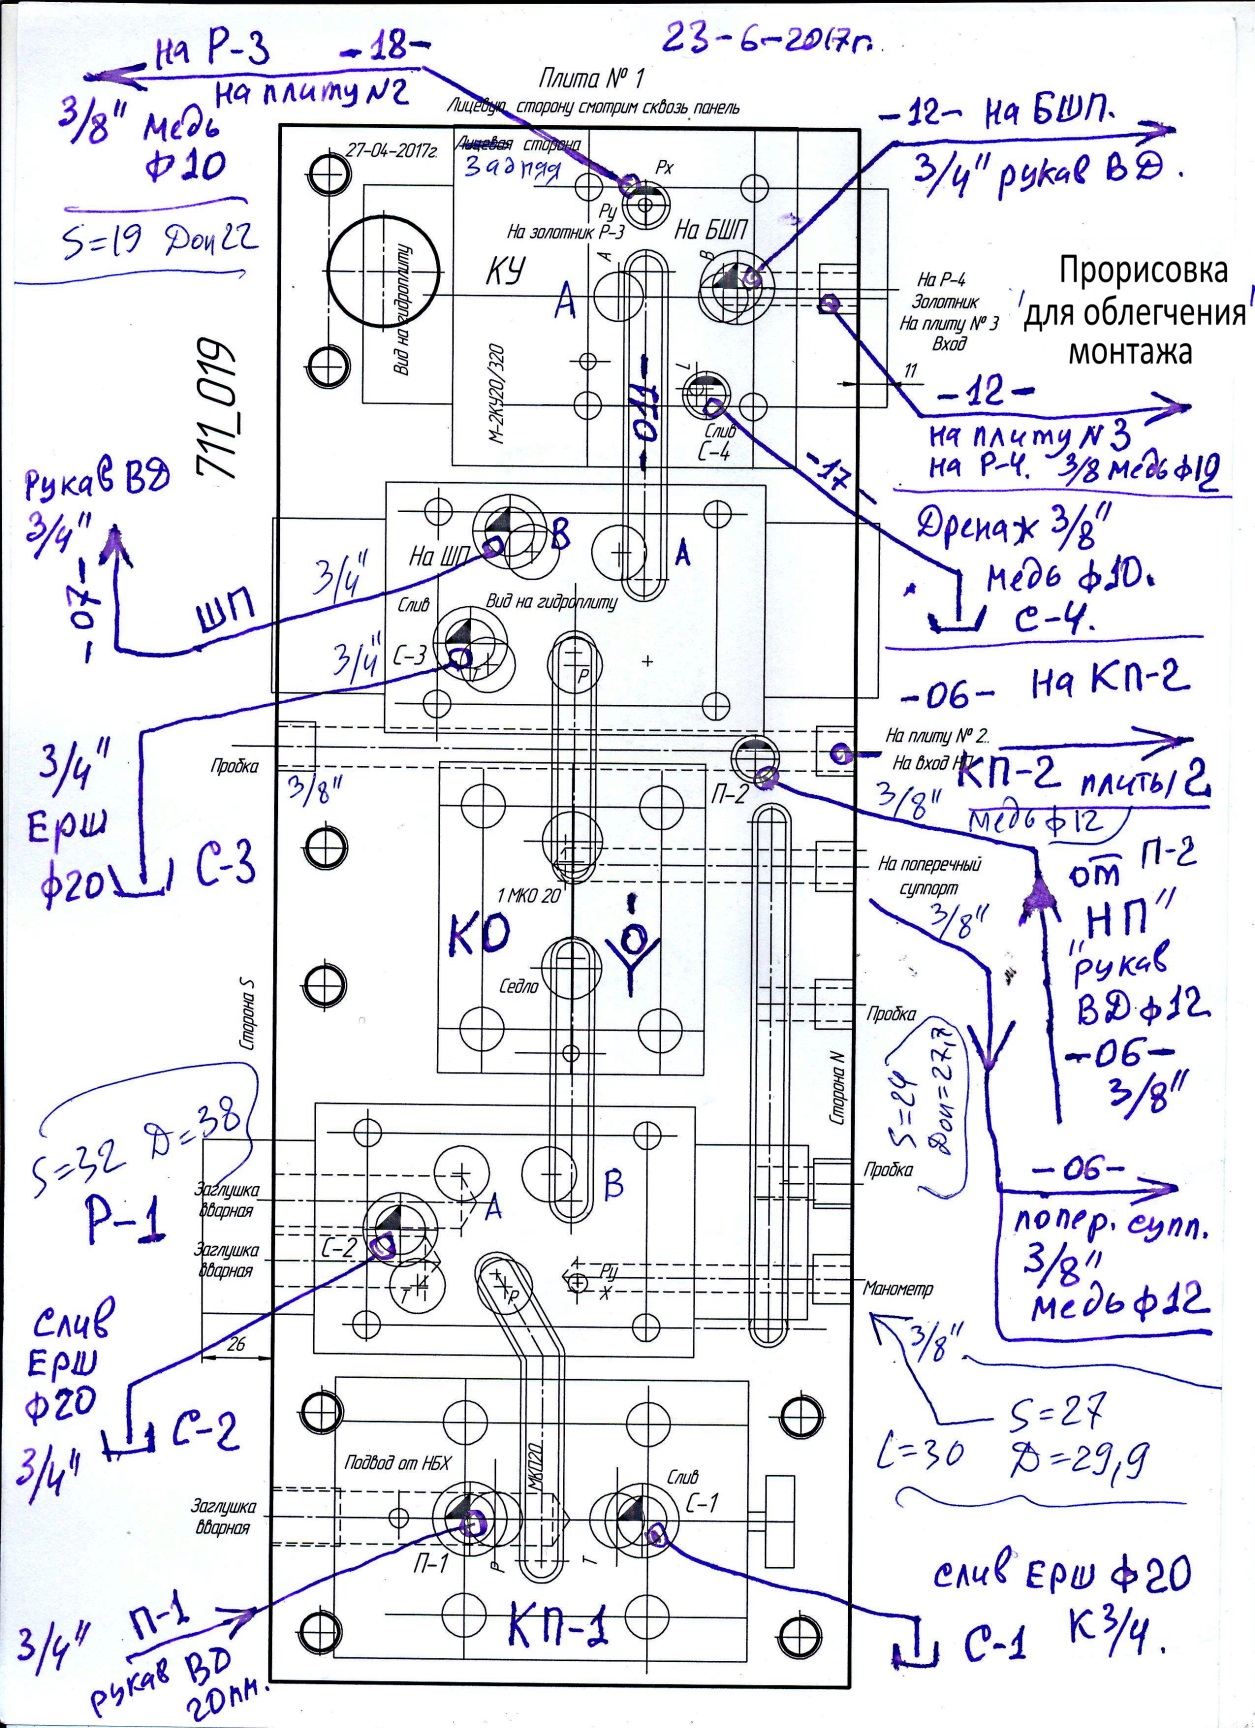 23-6-2017г.
на Р-3 -18-
на плиту N2
3/8" медь
ф10
S=19 Доп 22
Плита № 1
Лицевую сторону смотрим сквозь панель
27-04-2017г.
Лицевая сторона
Задняя
Рх
Ру
На золотник Р-3
На БШП
-12- на БШП.
3/4" рукав ВД.
Вид на гидроплиту
КУ
А
А
В
М-2КУ20/320
-011-
L
Слив
С-4
На Р-4
Золотник
На плиту № 3
Вход
11
Прорисовка
для облегчения
монтажа
-12-
на плиту N3
на Р-4. 3/8 медь ф12
-17-
Дренаж 3/8"
медь ф10.
С-4.
711_019
рукав ВД
3/4"
-07-
ШП
3/4"
На ШП
В
А
Слив
Вид на гидроплиту
3/4"
С-3
Т
Р
3/4"
Ерш
ф20
С-3
Пробка
3/8"
-06- на КП-2
На плиту № 2.
На вход
КП-2 плиты 2.
П-2
3/8"
медь ф12
от П-2
"НП"
рукав
ВД ф12
-06-
3/8"
На поперечный
суппорт
3/8"
1 МКО 20
КО
-0
Седло
Сторона S
Пробка
Сторона N
S=24
Доп=27,7
S=32 D=38
Р-1
Заглушка
вварная
Заглушка
вварная
А
В
С-2
Т
Р
Ру
Х
Пробка
Манометр
-06-
попер. супп.
3/8"
медь ф12
3/8"
S=27
L=30 D=29,9
26
Слив
ЕРШ
ф20
3/4"
С-2
Подвод от НБХ
МКП20
Слив
С-1
Заглушка
вварная
П-1
Р
Т
КП-1
3/4"
П-1
рукав ВД
20мм.
слив ЕРШ ф20
С-1 К3/4.